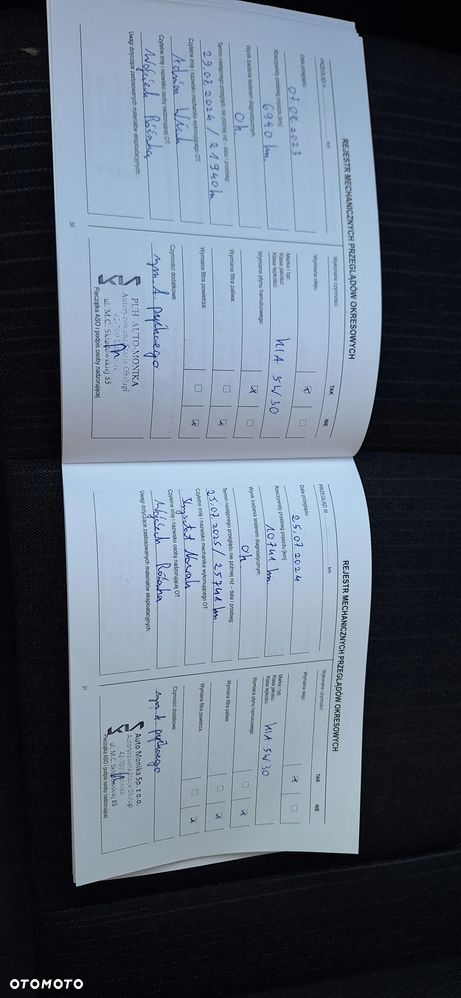 REJESTR MECHANICZNYCH PRZEGLĄDÓW OKRESOWYCH
PRZEGLĄD II
km
Data przeglądu:
07.08.2023
Rzeczywisty przebieg pojazdu [km]
6940 km
Wynik badania testerem diagnostycznym:
Termin następnego przeglądu nie później niż - data / przebieg
29.07.2024 / 21940 km
Czytelne imię i nazwisko mechanika wykonującego OT:
Czytelne imię i nazwisko osoby nadzorującej OT:
Wojciech
Uwagi dotyczące zastosowanych materiałów eksploatacyjnych:
Wykonane czynności
TAK
NIE
Wymiana oleju:
Marka i typ:
Klasa jakości:
Klasa lepkości:
KIA 5W30
Wymiana płynu hamulcowego:
Wymiana filtra paliwa:
Wymiana filtra powietrza:
Czynności dodatkowe:
wym. f. pyłkowego
PUH AUTO-MONIKA
Autoryzowana Stacja Obsługi
ul. M.C. Skłodowskiej 85
Pieczątka ASO i podpis osoby nadzorującej
30
REJESTR MECHANICZNYCH PRZEGLĄDÓW OKRESOWYCH
PRZEGLĄD III
km
Data przeglądu:
25.07.2024
Rzeczywisty przebieg pojazdu [km]
10741 km
Wynik badania testerem diagnostycznym:
Termin następnego przeglądu nie później niż - data / przebieg
25.07.2025 / 25741 km
Czytelne imię i nazwisko mechanika wykonującego OT:
Krzysztof Nowak
Czytelne imię i nazwisko osoby nadzorującej OT:
Wojciech
Uwagi dotyczące zastosowanych materiałów eksploatacyjnych:
Wykonane czynności
TAK
NIE
Wymiana oleju:
Marka i typ:
Klasa jakości:
Klasa lepkości:
KIA 5W30
Wymiana płynu hamulcowego:
Wymiana filtra paliwa:
Wymiana filtra powietrza:
Czynności dodatkowe:
wym. f. pyłkowego
Auto Monika Sp. z o.o.
Autoryzowana Stacja Obsługi
ul. M.C. Skłodowskiej 85
Pieczątka ASO i podpis osoby nadzorującej
31
OTOMOTO